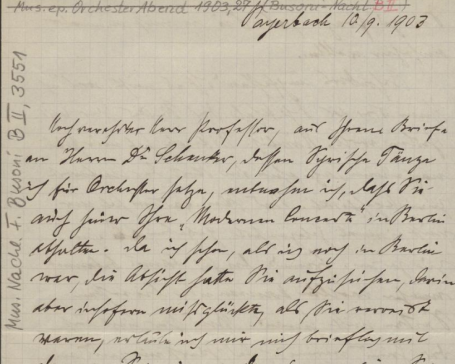 Mus. ep. Orchester Abend 1903, 27 (Busoni-Nachl. B II)
Mus. Nachl. F. Busoni B II, 3551
Payerbach 10./9. 1903
Hochverehrter Herr Professor, aus Ihrem Briefe
an Herrn Dr Schenker, dessen Syrische Tänze
ich für Orchester setze, entnehme ich, daß Sie
auch heuer Ihre „Modernen Concerte" in Berlin
abhalten. Da ich schon, als ich noch in Berlin
war, die Absicht hatte Sie aufzusuchen, darin
aber insofern missglückte, als Sie verreist
waren, erlaube ich mir nun brieflich mit